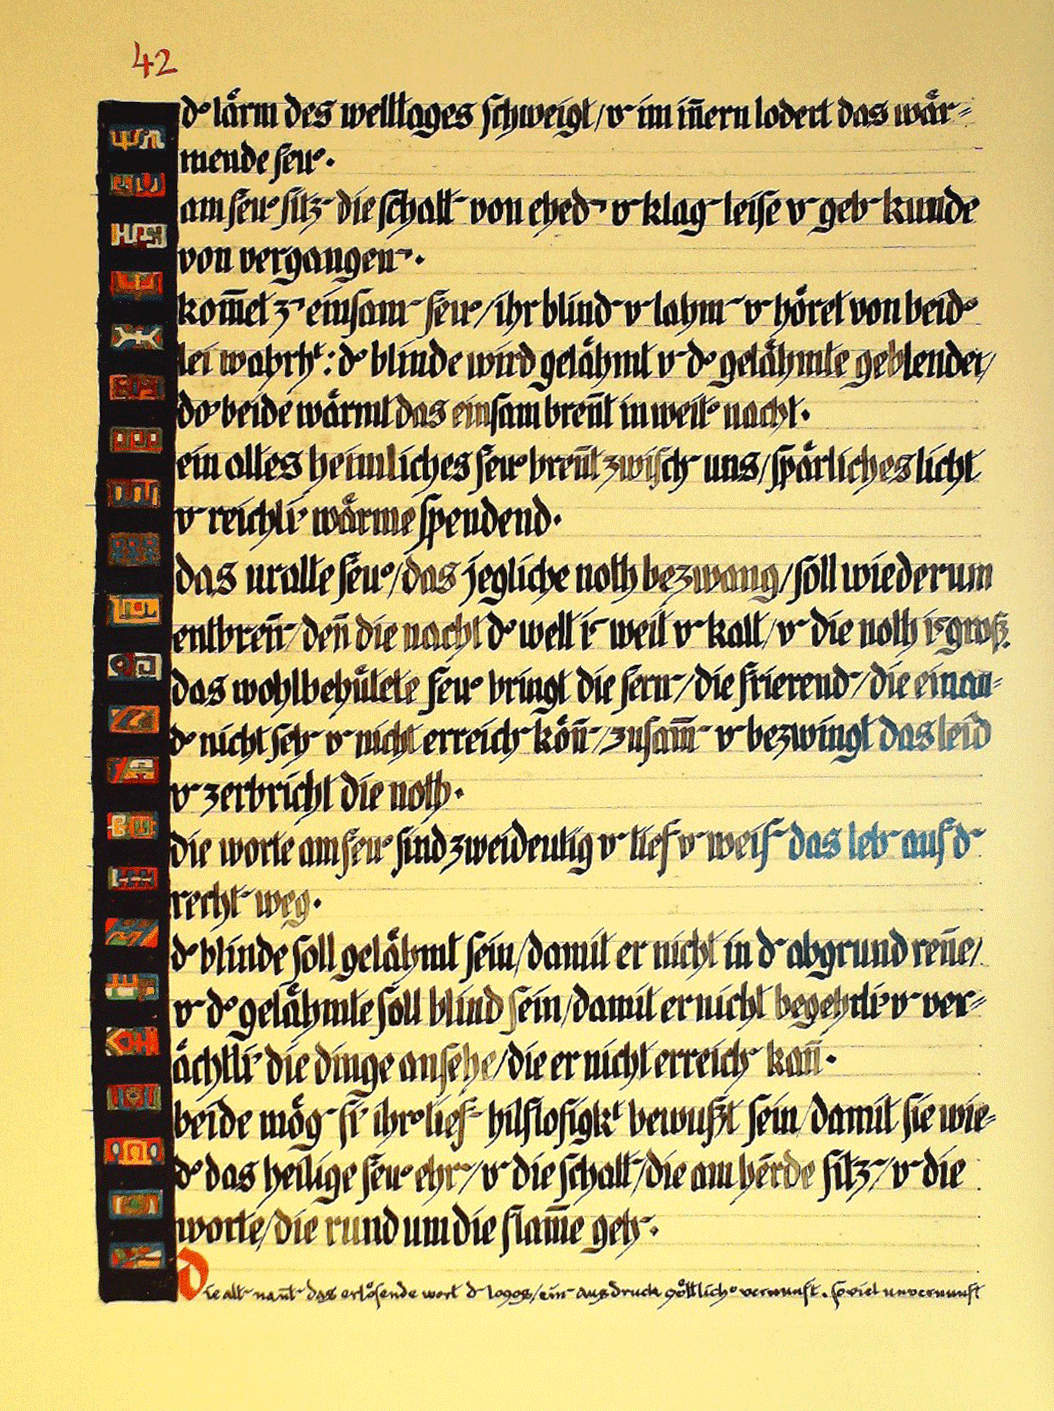 42
d' lärm des welttages schweigt/ v̄ im iñern lodert das wär=
mende feu'.
am feu' sitz‾ die schatt‾ von ehed‾ v̄ klag‾ leise v̄ geb‾ kunde
von vergangen‾.
kom̄et z‾ einsam‾ feu'/ ihr blind‾ v̄ lahm‾ v̄ höret von beid'
lei wahrht: d' blinde wird gelähmt v̄ d' gelähmte geblendet/
do' beide wärmt das einsam breñt in weit' nacht.
ein altes heimliches feu' breñt zwisch‾ uns/ spärliches licht
v̄ reichli‾ wärme spendend.
das uralte feu'/ das jegliche noth bezwang/ soll wiederum
entbreñ‾/ deñ die nacht d' welt i‾ weit v̄ kalt/ v̄ die noth i‾ groß.
das wohlbehütete feu' bringt die fern‾/ die frierend‾/ die einan=
d' nicht seh‾ v̄ nicht erreich‾ köñ‾/ zusam̄‾ v̄ bezwingt das leid
v̄ zerbricht die noth.
die worte am feu' sind zweideutig v̄ tief v̄ weis‾ das leb‾ auf d‾
recht‾ weg.
d' blinde soll gelähmt sein/ damit er nicht in d‾ abgrund reñe/
v̄ d' gelähmte soll blind sein/ damit er nicht begehrli‾ v̄ ver=
ächtli‾ die dinge ansehe/ die er nicht erreich‾ kañ.
beide mög‾ si‾ ihr' tief‾ hilflosigkt bewußt sein/ damit sie wie=
d' das heilige feu' ehr‾/ v̄ die schatt‾/ die am herde sitz‾/ v̄ die
worte/ die rund um die flam̄e geh‾.
Die alt‾ nañt‾ das erlösende wort d‾ logos/ ein‾ ausdruck göttlich' vernunft. soviel unvernunft